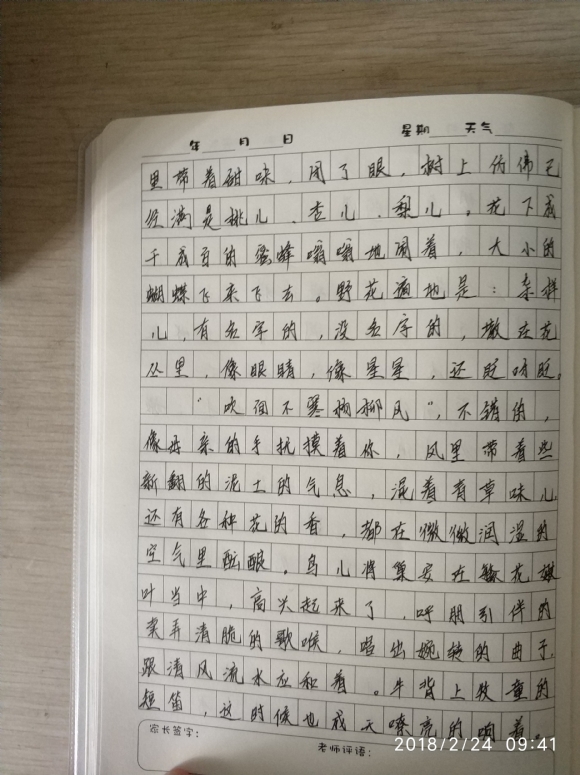 年 月 日 星期 天气
里带着甜味，闭了眼，树上仿佛已
经满是桃儿、杏儿、梨儿。花下成
千成百的蜜蜂嗡嗡地闹着，大小的
蝴蝶飞来飞去。野花遍地是：杂样
儿，有名字的，没名字的，散在花
丛里，像眼睛，像星星，还眨呀眨。
“吹面不寒杨柳风”，不错的，
像母亲的手抚摸着你，风里带着些
新翻的泥土的气息，混着青草味儿
还有各种花的香，都在微微润湿的
空气里酝酿。鸟儿将巢安在繁花嫩
叶当中，高兴起来了，呼朋引伴的
卖弄清脆的歌喉，唱出婉转的曲子，
跟清风流水应和着。牛背上牧童的
短笛，这时候也成天嘹亮的响着。
家长签字：
老师评语：
2018/2/24 09:41